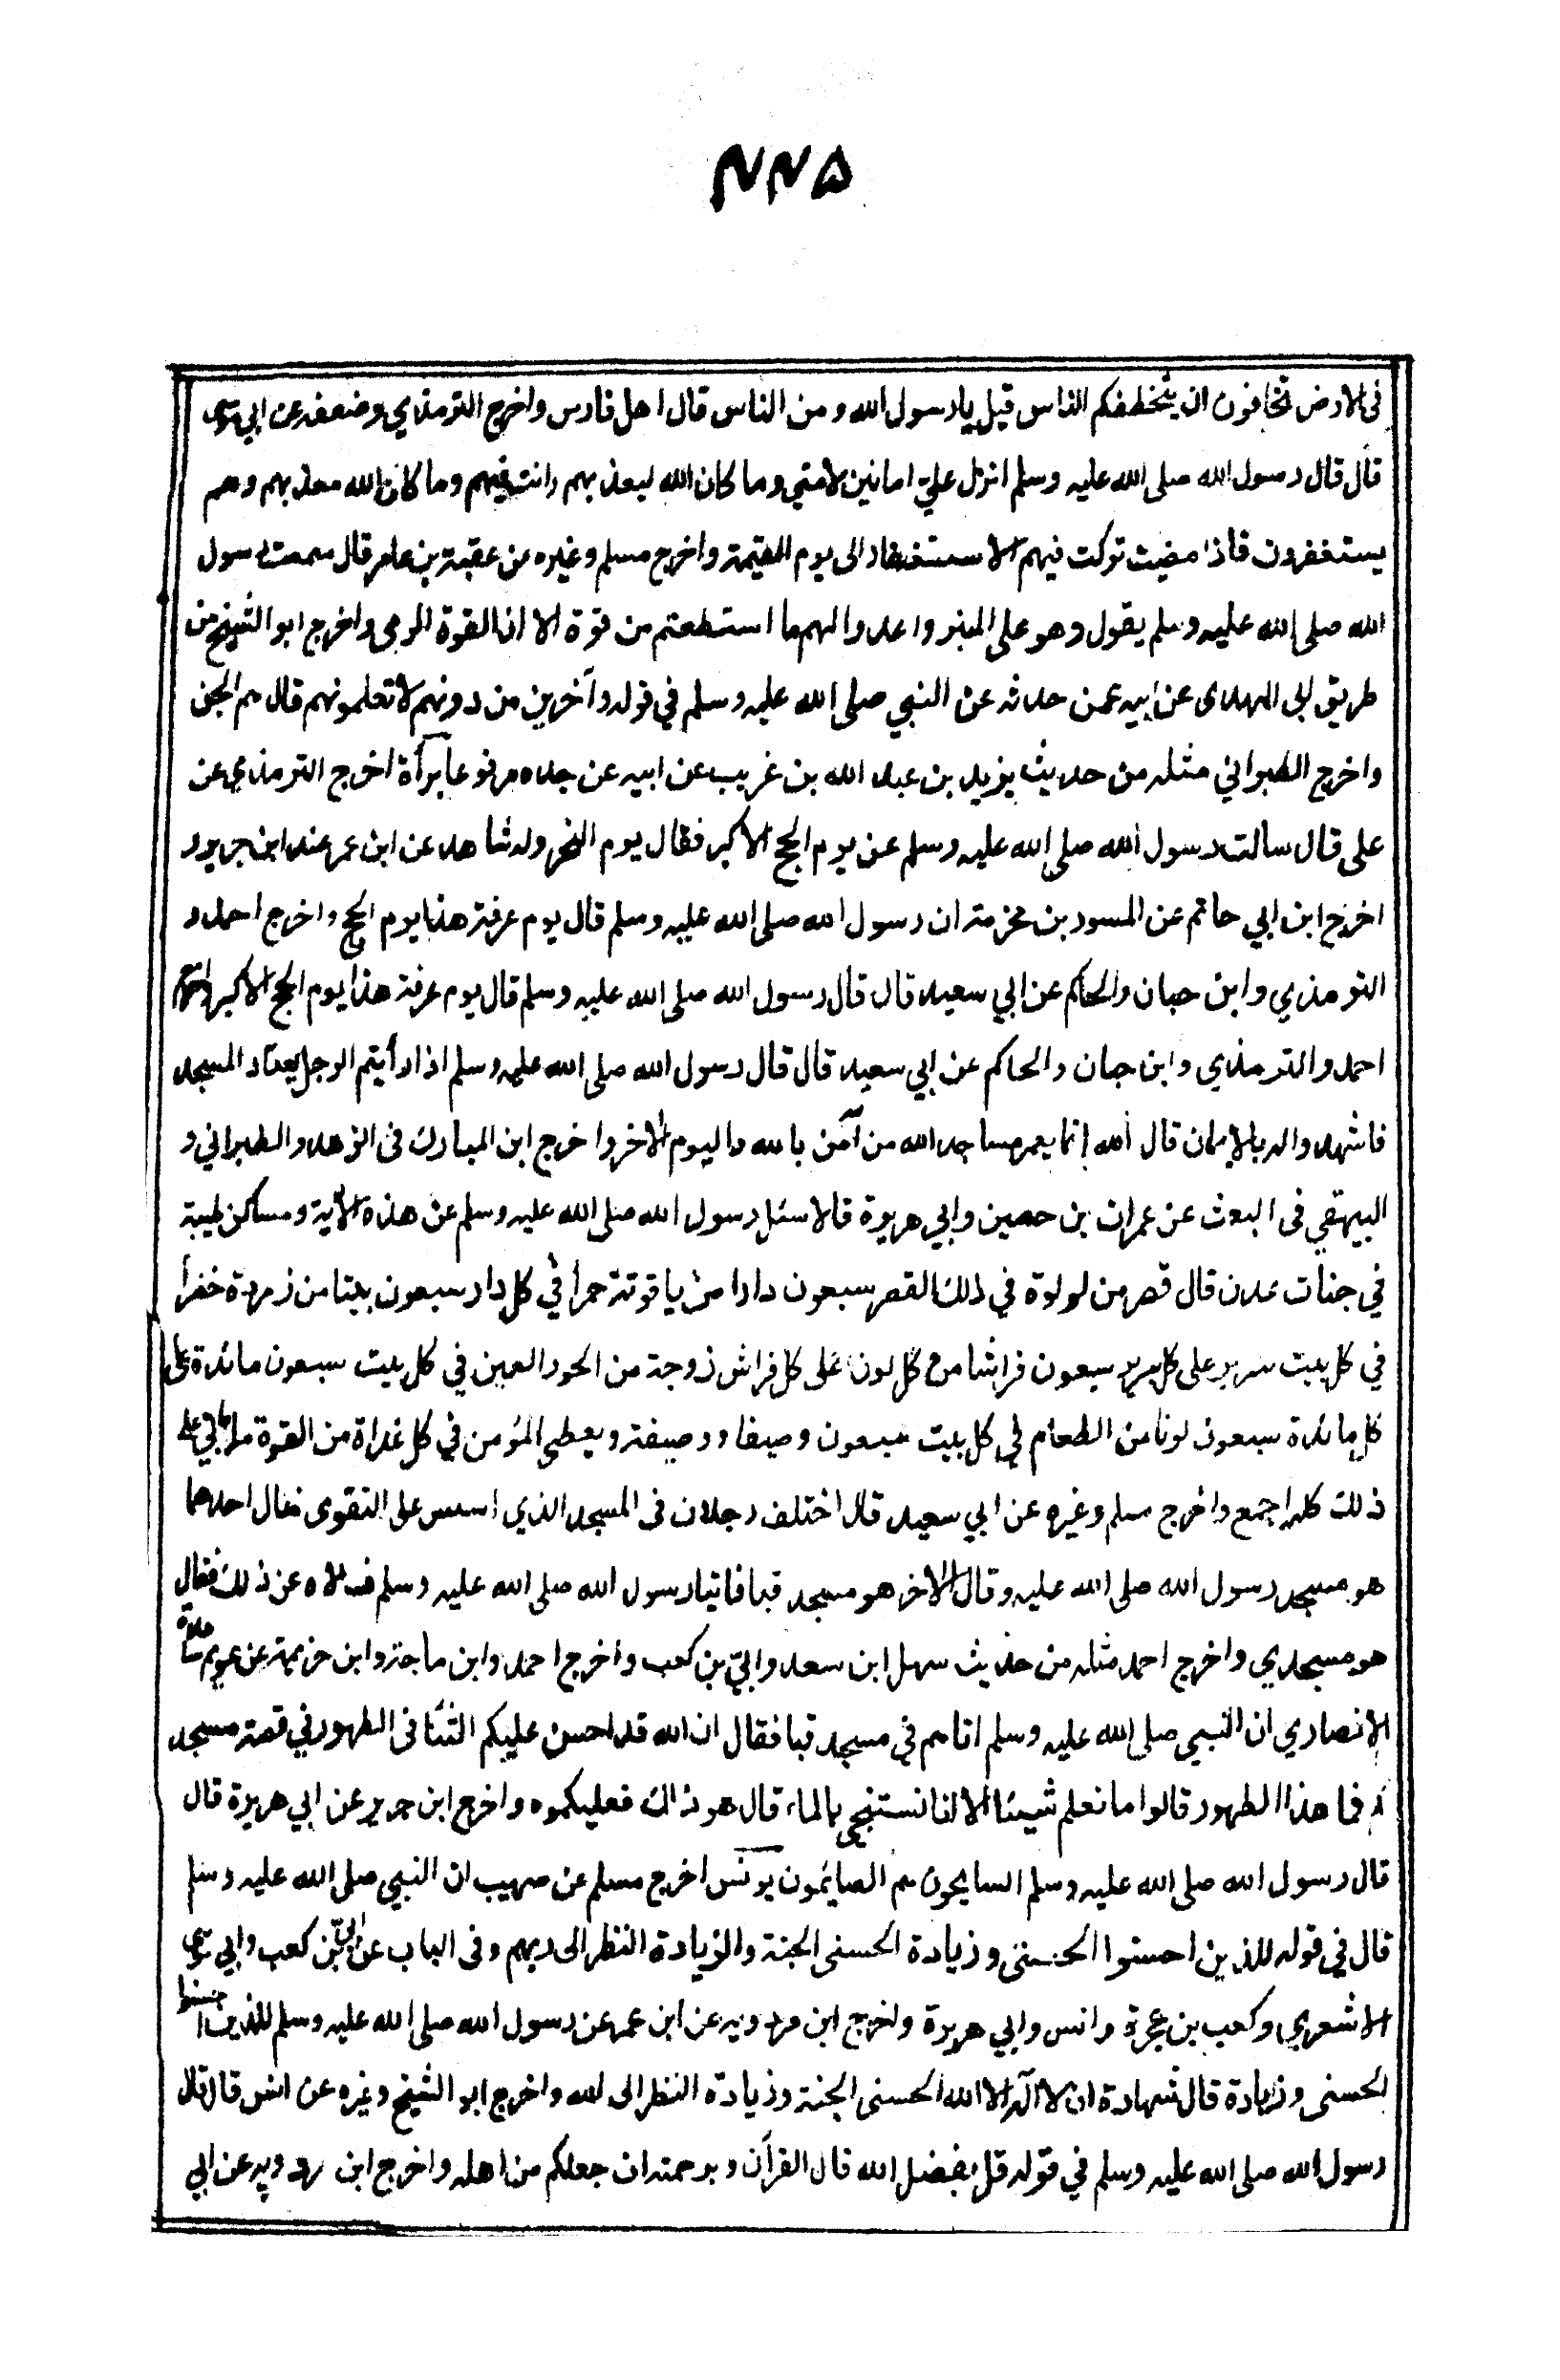 ۴۴۵
فى الارض تخافون ان يتخطفكم الناس قيل يا رسول الله ومن الناس قال اهل فارس واخرج الترمذي وضعفه عن ابي موسى
قال قال رسول الله صلى الله عليه وسلم انزل عليّ امانين لامتي وما كان الله ليعذبهم وانت فيهم وما كان الله معذبهم وهم
يستغفرون فاذا مضيت تركت فيهم الاستغفار الى يوم القيمة واخرج مسلم وغيره عن عقبة بن عامر قال سمعت رسول
الله صلى الله عليه وسلم يقول وهو على المنبر واعدوا لهم ما استطعتم من قوة الا ان القوة الرمى واخرج ابو الشيخ من
طريق ابى المهدى عن ابيه عمن حدثه عن النبي صلى الله عليه وسلم في قوله وآخرين من دونهم لا تعلمونهم قال هم الجن
واخرج الطبراني مثله من حديث يزيد بن عبد الله بن غريب عن ابيه عن جده مرفوعا برآة اخرج الترمذي عن
على قال سالت رسول الله صلى الله عليه وسلم عن يوم الحج الاكبر فقال يوم النحر وله شاهد عن ابن عمر عند ابن جرير و
اخرج ابن ابي حاتم عن المسور بن مخرمة ان رسول الله صلى الله عليه وسلم قال يوم عرفة هذا يوم الحج واخرج احمد و
الترمذي وابن حبان والحاكم عن ابي سعيد قال قال رسول الله صلى الله عليه وسلم قال يوم عرفة هذا يوم الحج الاكبر واخرج
احمد والترمذي وابن حبان والحاكم عن ابي سعيد قال قال رسول الله صلى الله عليه وسلم اذا رأيتم الرجل يعتاد المسجد
فاشهدوا له بالايمان قال الله إنما يعمر مساجد الله من آمن بالله واليوم الاخر واخرج ابن المبارك فى الزهد والطبراني و
البيهقي فى البعث عن عمران بن حصين وابي هريرة قالا سئل رسول الله صلى الله عليه وسلم عن هذه الآية ومساكن طيبة
في جنات عدن قال قصر من لولوة في ذلك القصر سبعون دارا من ياقوتة حمرأ في كل دار سبعون بيتا من زمردة خضرأ
في كل بيت سرير على كل سرير سبعون فراشا من كل لون على كل فراش زوجة من الحور العين في كل بيت سبعون مائدة على
كل مائدة سبعون لونا من الطعام في كل بيت سبعون وصيفا ووصيفة ويعطى المؤمن في كل غداة من القوة ما ياتي على
ذلك كله اجمع واخرج مسلم وغيره عن ابي سعيد قال اختلف رجلان فى المسجد الذي اسس على التقوى فقال احدهما
هو مسجد رسول الله صلى الله عليه وقال الاخر هو مسجد قبا فاتيا رسول الله صلى الله عليه وسلم فسالاه عن ذلك فقال
هو مسجدي واخرج احمد مثله من حديث سهل ابن سعد وابيّ بن كعب واخرج احمد وابن ماجة وابن خزيمة عن عويم بن ساعدة
الانصاري ان النبي صلى الله عليه وسلم اتاهم في مسجد قبا فقال ان الله قد احسن عليكم الثنأ فى الطهور في قصة مسجد
كم فما هذا الطهور قالوا ما نعلم شيئا الا انا نستنجي بالماء قال هو ذاك فعليكموه واخرج ابن جرير عن ابي هريرة قال
قال رسول الله صلى الله عليه وسلم السايحون هم الصايمون يونس اخرج مسلم عن صهيب ان النبي صلى الله عليه وسلم
قال في قوله للذين احسنوا الحسنى وزيادة الحسنى الجنة والزيادة النظر الى ربهم وفى الباب عن ابيّ بن كعب وابي موسى
الاشعري وكعب بن عجرة وانس وابي هريرة واخرج ابن مردويه عن ابن عمر عن رسول الله صلى الله عليه وسلم للذين احسنوا
الحسنى وزيادة قال شهادة ان لا آله الا الله الحسنى الجنة وزيادة النظر الى الله واخرج ابو الشيخ وغيره عن انس قال قال
رسول الله صلى الله عليه وسلم في قوله قل بفضل الله قال القرآن وبرحمته ان جعلكم من اهله واخرج ابن مردويه عن ابي